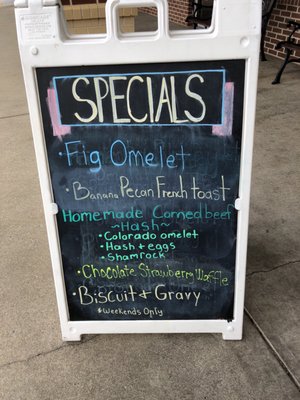 SPECIALS
• Fig Omelet
• Banana Pecan French toast
Homemade Corned beef
~Hash~
• Colorado omelet
• Hash + eggs
• Shamrock
• Chocolate Strawberry Waffle
• Biscuit + Gravy
* Weekends Only